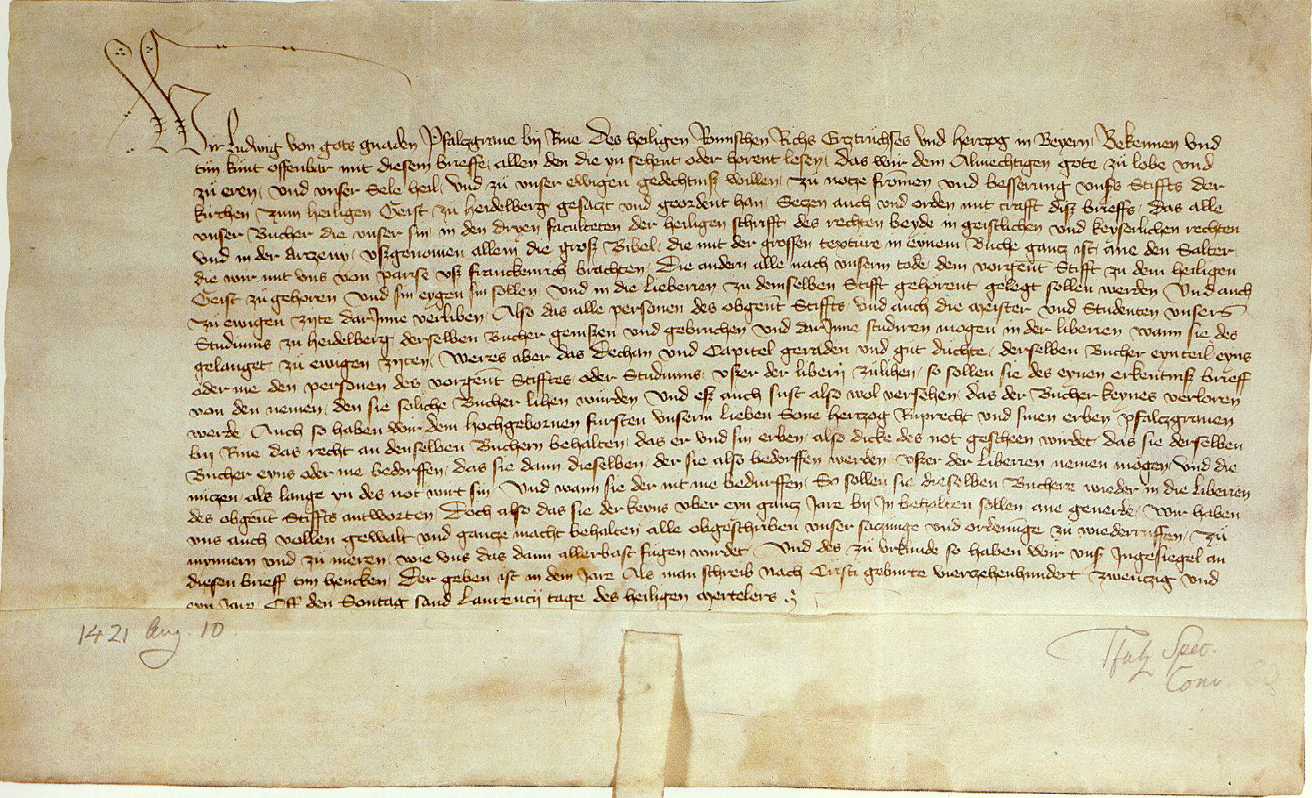 Wir Ludwig von gots gnaden Pfalzgraue bij Rine Des heiligen Romischen Richs Ertztruchses vnd Hertzog in Beyern / Bekennen vnd
tun kunt offenbar mit diesem brieffe, allen den die yn sehent oder horent lesen, das wir dem Almechtigen gote zü lobe vnd
zü eren / vnd vnser Sele heil / vnd zü vnser ewigen gedechtnisz willen / zü notze fromen vnd besserung vnsers Stiffts der
kirchen zum heiligen Geist zü heidelberg gesatzt vnd geordent han / Setzen auch vnd orden mit crafft disz brieffs, das alle
vnser Bucher die vnser sin in den dryen faculteten der heiligen schrifft des rechten beyde in geistlichen vnd keyserlichen rechten
vnd in der Artzeny, vszgenomen allein die grosz Bibel, die mit der grossen texture in eynem Buche gantz ist ane den Salter
die wir mit vns von parise vsz franckenrich brachten, Die andern alle nach vnserm tode dem vorgent Stifft zu dem heiligen
Geist zü gehoren vnd sin eygen sin sollen vnd in die lieberien zu demselben Stifft gehorent gelegt sollen werden Vnd auch
zü ewigen zyte darInne verliben, Also das alle personen des obgent Stiffts vnd auch die Meister vnd Studenten vnsers
Studiums zu heidelberg derselben Bucher genissen vnd gebruchen vnd darInne studiren mogen in der liberien wann sie des
gelanget zü ewigen zyten, Weres aber das Dechan vnd Capitel geraden vnd güt duchte, derselben Bucher eynteil eyns
oder me den personen des vorgent Stifftes oder Studiums vszer der libery zülihen, so sollen sie des eynen erkentnisz brieff
von den nemen, den sie soliche Bucher lihen wurden Vnd esz auch sust also wol versehen, das der Bücher keynes verloren
werde Auch so haben wir dem hochgebornen fursten vnserm lieben Sone hertzog Ruprecht vnd sinen erben pfaltzgrauen
bij Rine das recht an denselben Buchern behalten, das er vnd sin erben, also dicke des not gescheen wirdet das sie derselben
Bucher eyns oder me bedorffen, das sie dann dieselben, der sie also bedorffen werden vszer der liberien nemen mogen vnd die
nutzen als lange yn des not wirt sin, Vnd wann sie der nit me bedurffen, So sollen sie dieselben Buchere wieder in die liberien
des obgent Stiffts antworten, Doch also das sie der keyns vber eyn gantz Jare by In behalten sollen ane geuerde, Wir haben
vns auch vollen gewalt vnd gantze macht behalten alle obgeschriben vnser satzunge vnd ordenunge zu wiederruffen, zü
mynnern vnd zü meren, wie vns das dann allerbast fugen wirdet Vnd des zü vrkunde so haben wir vnser Ingesiegel an
diesen brieff tun hencken, Der geben ist in dem Jare Als man schreib Nach Cristi geburte vierzehenhundert zwentzig vnd
eyn Jare Off den Sontag sand Laurencij tage des heiligen mertelers
1421 Aug. 10
Pfalz Spec.
Conv